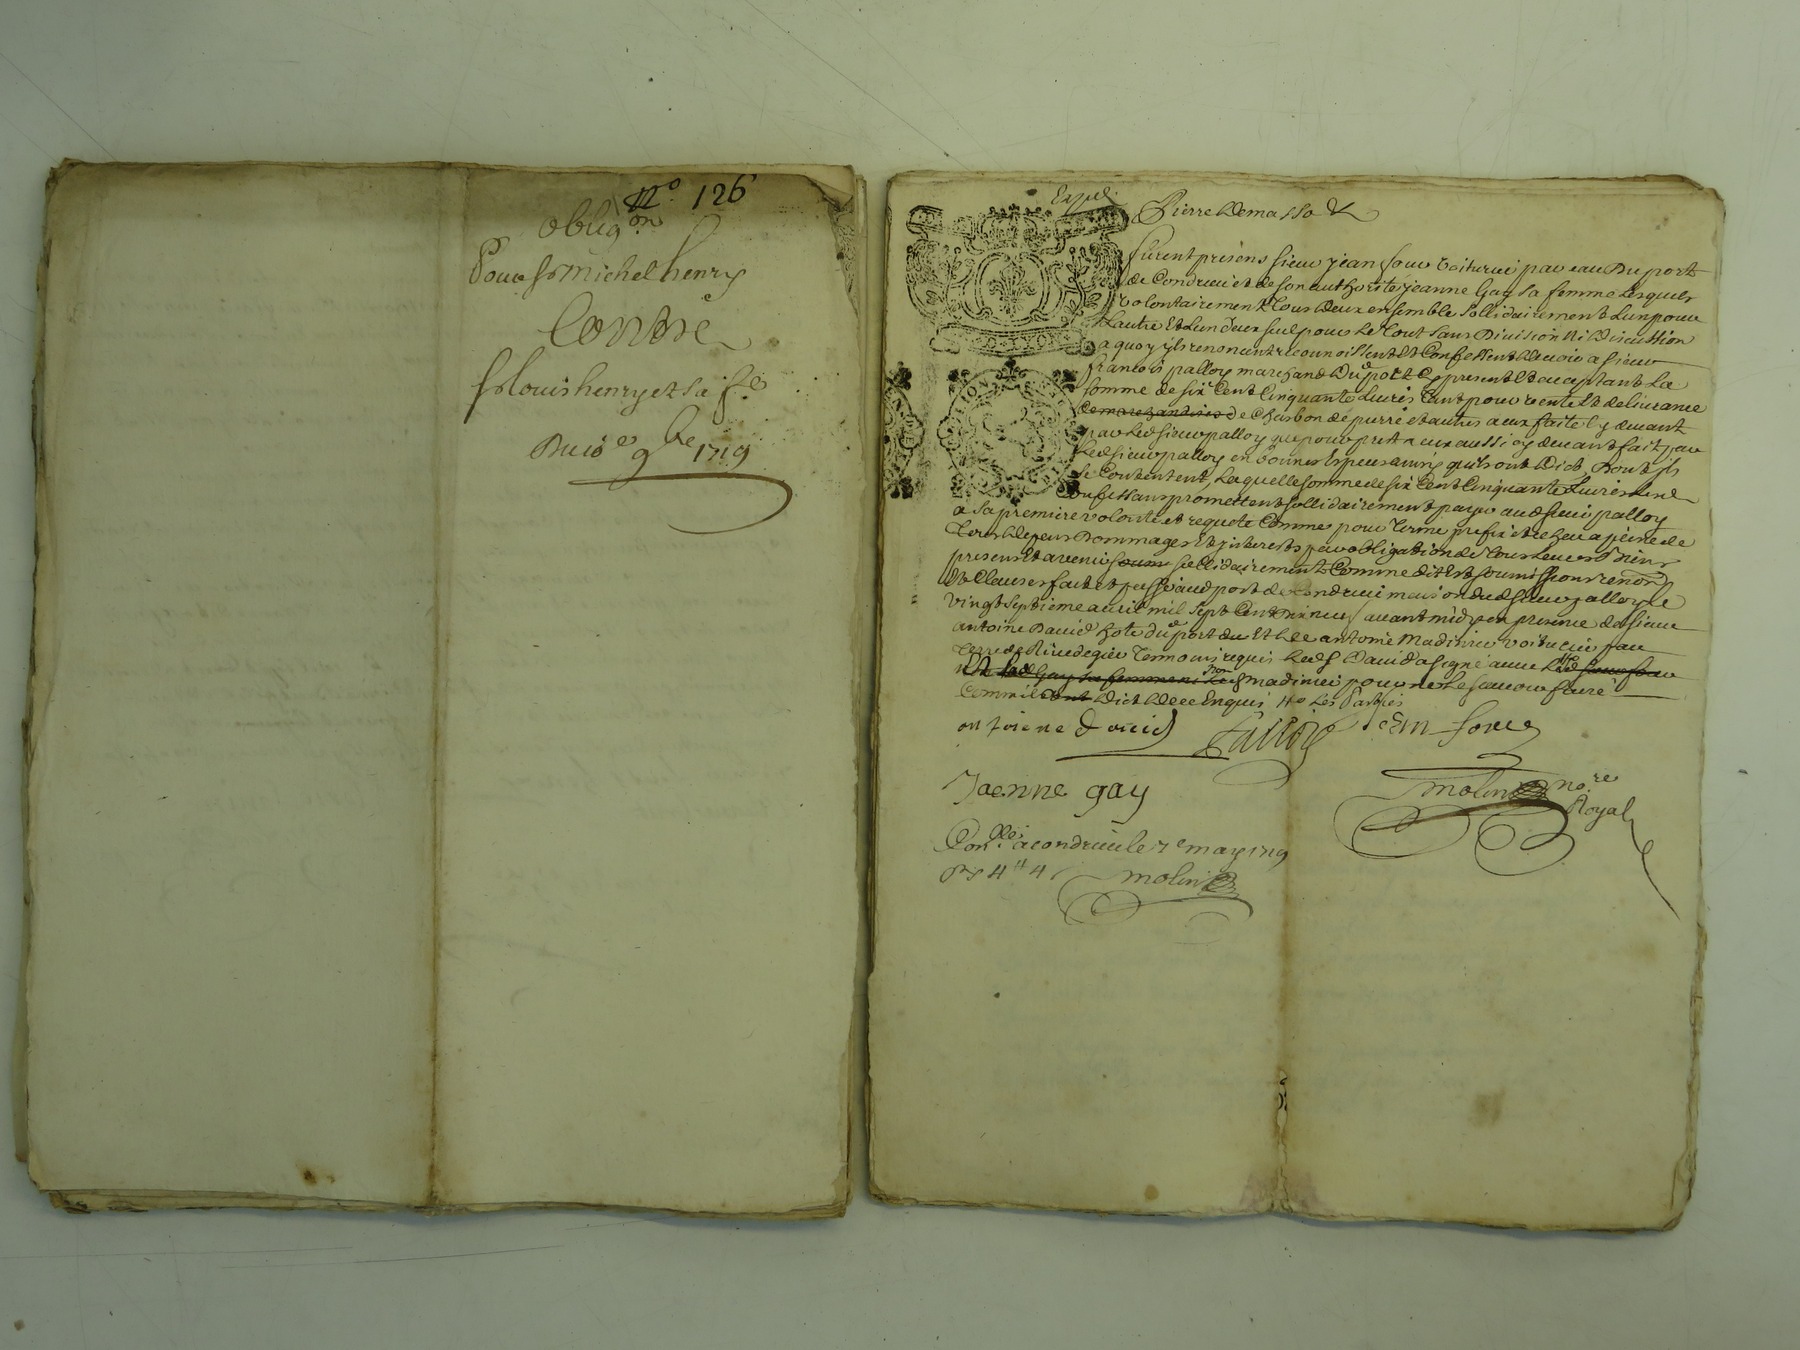 N.º 126
obligon
Pour sr michel henry
Contre
sr louis henry et sa fe
Du 16e 9bre 1719
Expé
Pierre Demasso &
furent présens sieur jean four voiturier par eau Du port
de Condrieu et de son authorité jeanne Gay sa femme Lesquels
volontairement tous deux ensemble sollidairement Lun pour
Lautre Et Lun deux seul pour Le tout sans Division Ni Discution
a quoy yls renoncent reconnoissent Et Confessent devoir a sieur
francois palloy marchand Dud port Cy present Et acceptant La
somme de six Cent Cinquante Livres tant pour vente Et delivrance
de marchandises de Charbon de pierre et autres a eux faite Cy devant
par Led sieur palloy que pour prest a eux aussi cy devant fait par
Led sieur palloy en bonnes Especes ainsy quils ont Dict Dont yls
se Contentent, Laquelle somme de six Cent Cinquante Livres Lesd
Confessans promettent sollidairement payer aud sieur palloy
a sa premiere volonté et requete Comme pour terme prefix et echeu a peine de
tous depens Dommages Et jnterests par obligation de tous Leurs Biens
presens Et avenir sollidairement Comme dit Est soumissions renons
Et Clauses fait et passé aud port de Condrieu maison dud sieur palloy Le
vingt septieme avril mil sept Cent Dix neuf avant midy en presence de sieur
antoine David hote dud port du Et de antoine Madinier voiturier par
terre de Rivedegier temoins requis Led sr David a signé avec
Lad Gay sa femme ni Led Madinier pour ne Le scavoir faire
Comm il ont Dict de ce Enquis Les Parties
antoiene david Palloy Jean four
Jaenne gay
molin nore
Royal
Conllé a condrieu le 7e may 1719
Rs 4tt 4
molin